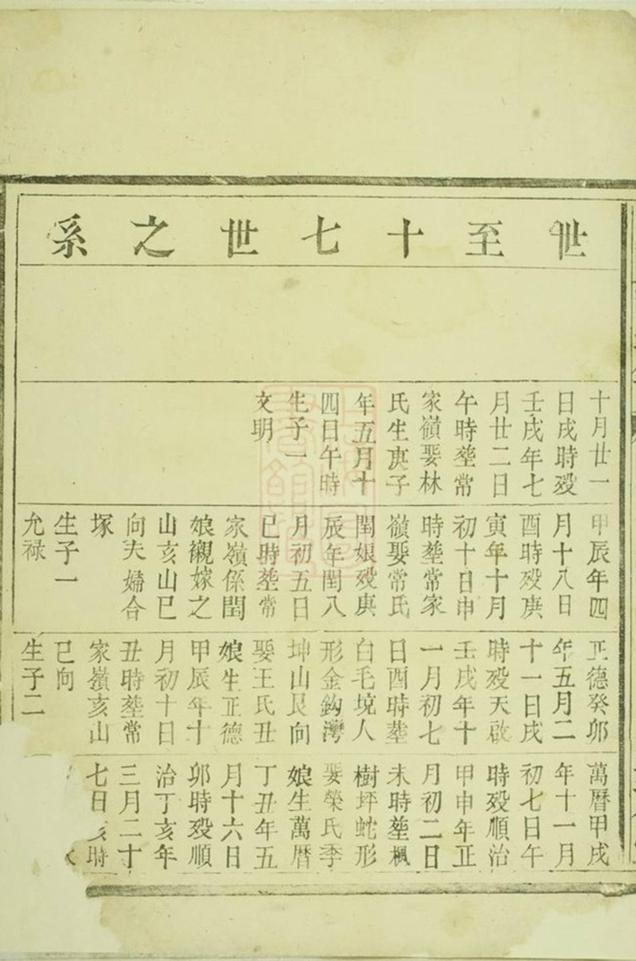 世至十七世之系
十月廿一
日戌時殁
壬戌年七
月廿二日
午時塟常
家嶺娶林
氏生庚子
年五月十
四日午時
生子一
文明
甲辰年四
月十八日
酉時殁庚
寅年十月
初十日申
時塟常家
嶺娶常氏
閏娘殁庚
辰年閏八
月初五日
巳時塟常
家嶺係閏
娘襯嫁之
山亥山巳
向夫婦合
塚
生子一
允禄
正德癸卯
年五月二
十一日戌
時殁天啟
壬戌年十
一月初七
日酉時塟
白毛境人
形金鈎灣
坤山艮向
娶王氏丑
娘生正德
甲辰年十
月初十日
丑時塟常
家嶺亥山
巳向
生子二
萬曆甲戌
年十一月
初七日午
時殁順治
甲申年正
月初二日
未時塟楓
樹坪蛇形
娶榮氏李
娘生萬曆
丁丑年五
月十六日
卯時殁順
治丁亥年
三月二十
七日 時